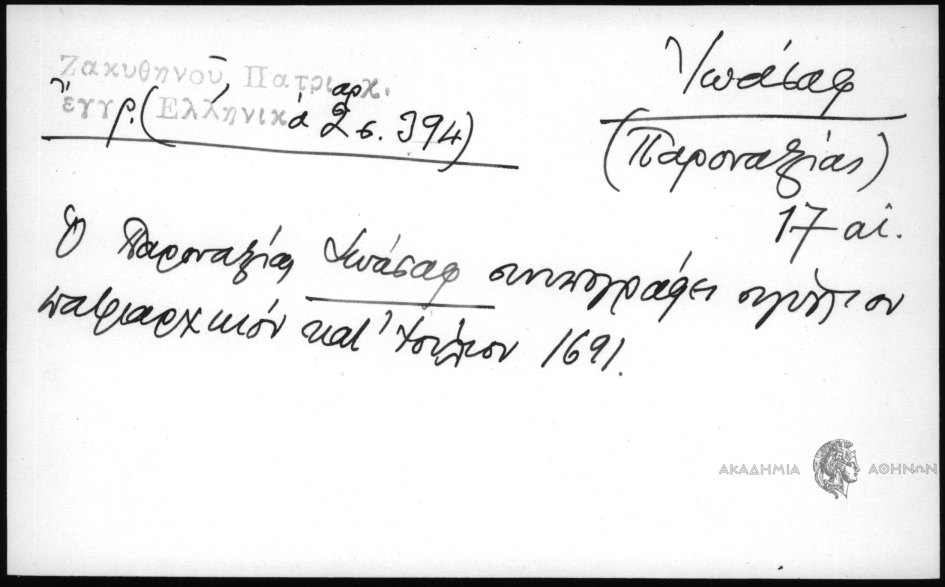 Ζακυθηνοῦ, Πατριαρχ.
ἔγγρ. (Ἑλληνικά 2 σ. 394)
Ἰωάσαφ
(Παροναξίας)
17 αἰ.
Ὁ Παροναξίας Ἰωάσαφ συνυπογράφει σιγίλλιον
πατριαρχικόν κατ' Ἰούλιον 1691.
ΑΚΑΔΗΜΙΑ ΑΘΗΝΩΝ